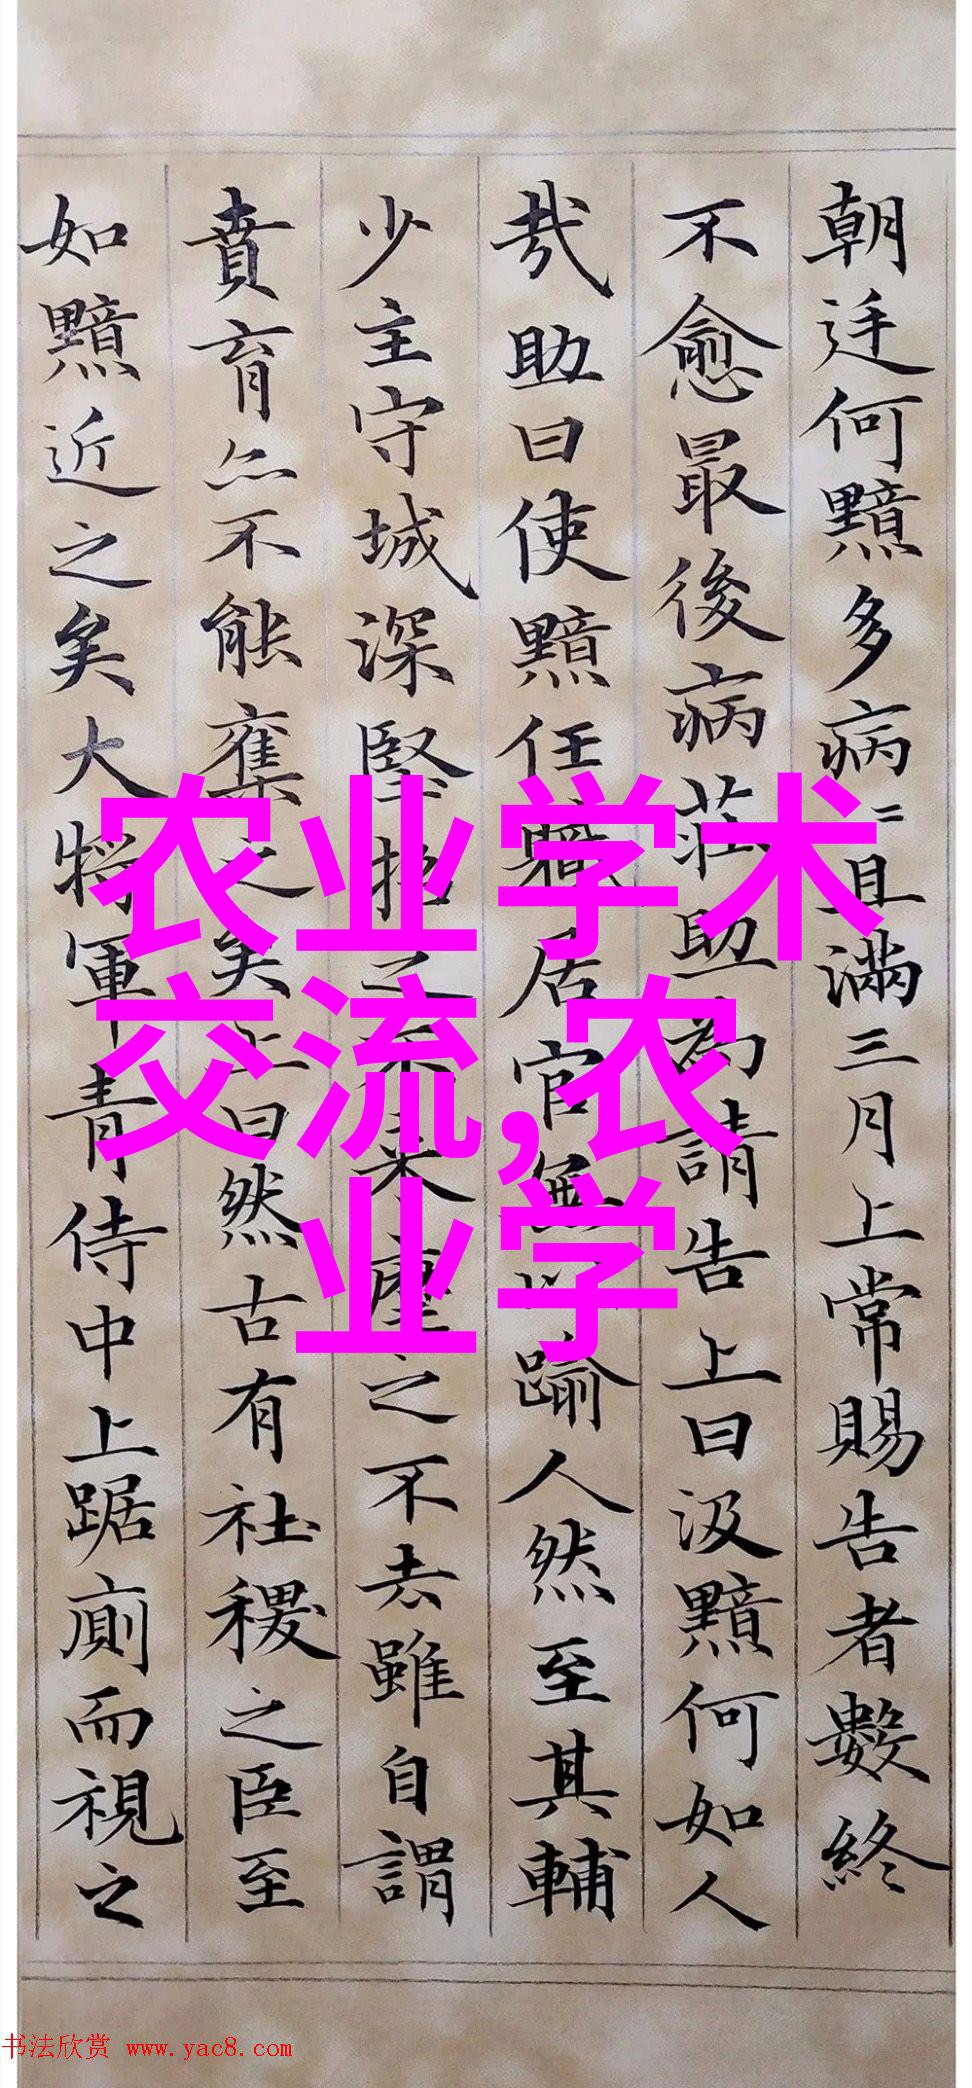 朝廷何黯多病〻且滿三月上常賜告者數終
不愈最後病莊助為請告上曰汲黯何如人
哉助曰使黯任職居官無以踰人然至其輔
少主守城深堅招之不来麾之不去雖自謂
賁育亦不能奪之矣上曰然古有社稷之臣至
如黯近之矣大將軍青侍中上踞廁而視之
农业学术
交流,农
业学
书法欣赏 www.yac8.com